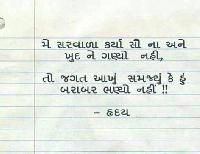 મે સરવાળા કર્યા સૌ ના અને
ખુદ ને ગણ્યો નહી,
તો જગત આખું સમજ્યું કે હું
બરાબર ભણ્યો નહીં !!
- હૃદય